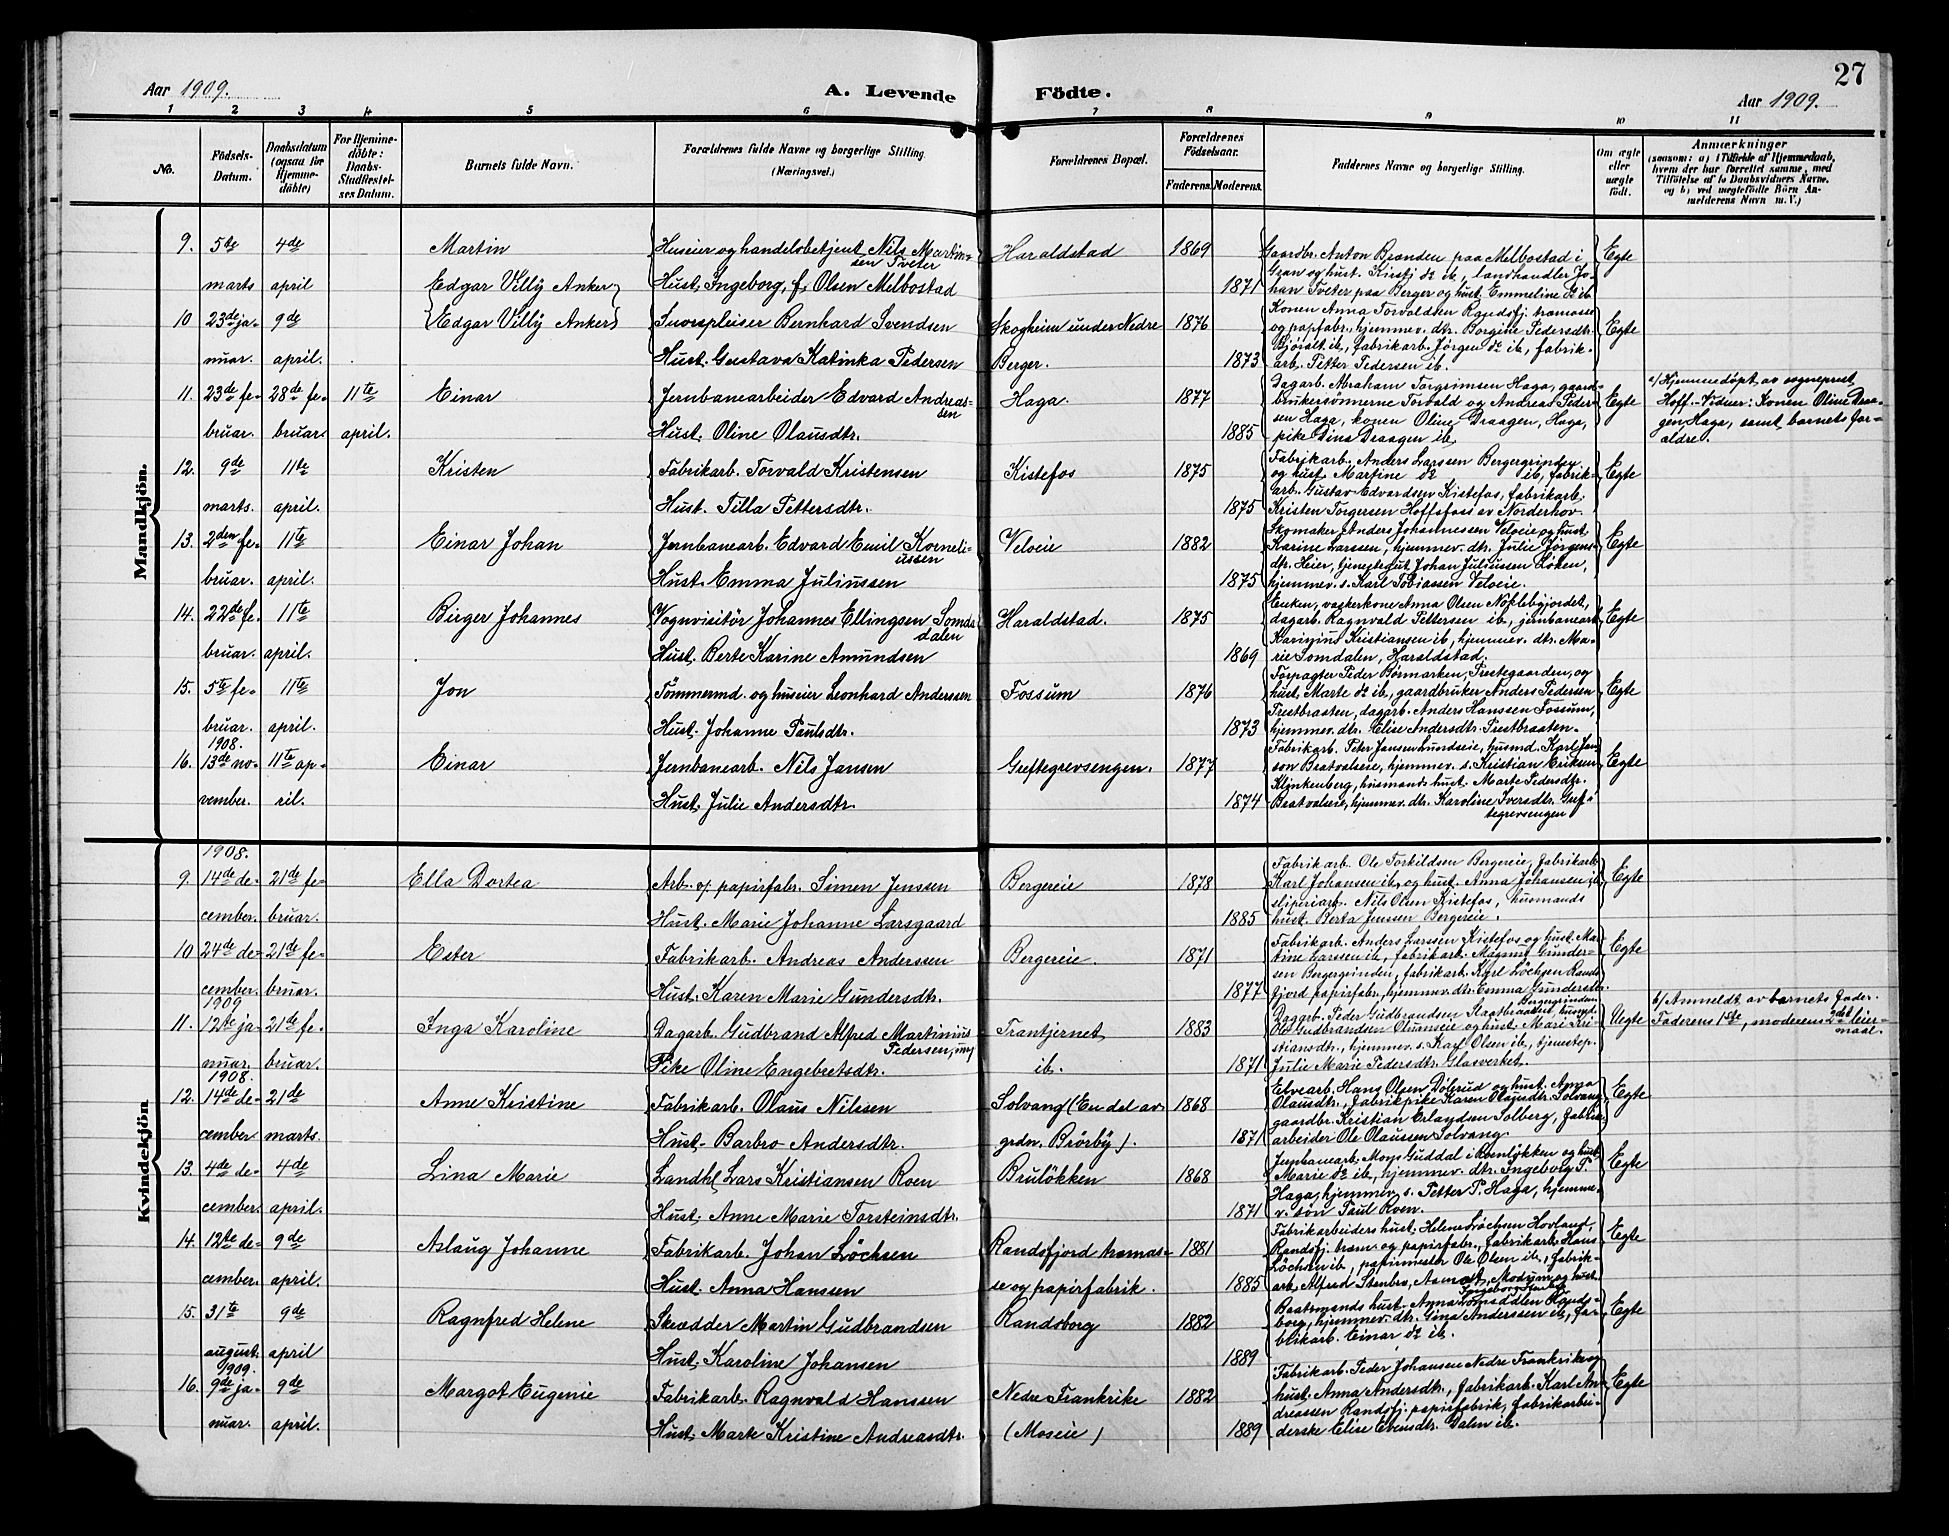 27
Aar 1909.
A. Levende Födte.
Aar 1909.
1 2 3 4 5 6 7 8 9 10 11
No.
Födsels-Datum.
Daabsdatum (ogsaa for Hjemmedöbte)
For Hjemmedöbte: Daabs-Stadfestelses Datum.
Barnets fulde Navn.
Forældrenes fulde Navne og borgerlige Stilling. (Næringsvei.)
Forældrenes Bopæl.
Forældrenes Födselsaar.
Faderens. Moderens.
Faddernes Navne og borgerlige Stilling.
Om ægte eller uægte født.
Anmærkninger
(saasom: a) i Tilfælde af Hjemmedaab, hvem der har forrettet samme, med Tilföielse af to Daabsvidners Navne, og b) ved uægtefödte Börn Anmelderens Navn m. V.)
Mandkjön.
9. 5te marts 4de april
Martin
Huseier og handelsbetjent Nils Martinsen Tveter
Hust. Ingeborg, f. Olsen Melbostad
Haraldstad 1869 1871
Gaardbr. Anton Brænden paa Melbostad i
Gran og hust. Kirsti do ib., landhandler Jo-
han Tveter paa Berger og hust. Emmeline do ib.
Egte
10 23de januar. 9de april.
{Edgar Villy Anker}
{Edgar Villy Anker}
Snorspleiser Bernhard Svendsen
Hust. Gustava Katinka Pedersen
Skogheim under Nedre Berger. 1876 1873
Konen Anna Torvaldsen Randsfj. tramasse
og papfabr., hjemmev. dtr. Borgine Pedersdtr.
ib., fabrikarb. Jørgen do ib., fabrik-
arb. Petter Pedersen ib.
Egte
11. 23de februar. 28de februar. 11te april.
Einar
Jernbanearbeider Edvard Andreassen
Hust. Oline Olausdtr.
Haga. 1877 1885
Dagarb. Abraham Torgrimsen Haga, gaard-
brukersønnerne Torvald og Andreas Peder-
sen Haga, konen Oline Draagen, Haga,
pike Dina Draagen ib.
Egte
a/ Hjemmedøpt av sogneprest
Hoff. - Vidner: Konen Oline Draa-
gen Haga, samt barnets for-
ældre.
12. 9de marts. 11te april.
Kristen
Fabrikarb. Torvald Kristensen
Hust. Tilla Pettersdtr.
Kistefos 1875 1875
Fabrikarb. Anders Larssen Bergergrinden
og hust. Martine do ib., fabrik-
arb. Gustav Edvardsen Kistefos, fabrikarb.
Kristen Torgersen Hoffsfoss av Norderhov.
Egte
13. 2den februar. 11te april.
Einar Johan
Jernbanearb. Edvard Emil Korneliussen
Hust. Emma Juliussen
Veloeie 1882 1875
Skomaker Anders Johannessen Veloeie og hust.
Karine Larssen, hjemmev. dtr. Julie Jørgens-
dtr. Heier, tjenestegut Johan Juliussen Loken,
hjemmev. s. Karl Tobiassen Veloeie.
Egte
14. 22de februar. 11te april.
Birger Johannes
Vognvisitør Johannes Ellingsen Somdalen
Hust. Berte Karine Amundsen
Haraldstad. 1875 1869
Enken, vaskerkone Anna Olsen Nøklebyjordet,
dagarb. Ragnvald Pettersen ib., jernbanearb.
Karinius Kristiansen ib., hjemmev. dtr. Ma-
rie Somdalen, Haraldstad.
Egte
15. 5te februar. 11te april.
Jon
Tømmermd. og huseier Leonhard Anderssen
Hust. Johanne Paulsdtr.
Fossum 1876 1873
Forpagter Peder Børmarken, Prestegaarden, og
hust. Marte do ib., gaardbruker Anders Pedersen
Prestbraaten, dagarb. Anders Hanssen Fossum,
hjemmev. dtr. Elise Andersdtr. Prestbraaten.
Egte
16. 1908. 13de november. 11te april.
Einar
Jernbanearb. Nils Jansen
Hust. Julie Andersdtr.
Greftegrevsengen. 1877 1874
Fabrikarb. Peter Jansen Lundseie, husmd. Karl Jan-
son Bratvalseie, hjemmev. s. Kristian Eriksen
Klinkenberg, husmands hust. Marte Pedersdtr.
Bratvalseie, hjemmev. dtr. Karoline Iversdtr. Gref-
tegrevsengen
Egte
Kvindekjön
1908.
9. 14de december. 21de februar.
Ella Dortea
Arb. v/ papirfabr. Simen Jenssen
Hust. Marie Johanne Larsgaard
Bergereie 1878 1885
Fabrikarb. Ole Torkildsen Bergereie, fabrikarb.
Karl Johansen ib., og hust. Anna Johansen ib.,
sliperiarb. Nils Olsen Kistefos, husmands
hust. Berta Jenssen Bergereie.
Egte
10 24de december. 21de februar.
Ester
Fabrikarb. Andreas Anderssen
Hust. Karen Marie Gundersdtr.
Bergereie. 1871 1877
Fabrikarb. Anders Larssen Kistefos og hust. Mar-
tine Larssen ib., fabrikarb. Magnus Gunder-
sen Bergergrinden, fabrikarb. Karl Løchsen Rands-
fjord papirfabr., hjemmev. dtr. Emma Gundersdtr.
Bergergrinden
Egte
11. 1909 12te januar. 21de februar.
Inga Karoline
Dagarb. Gudbrand Alfred Martinius Pedersen, ung
Pike Oline Engebretsdtr.
Trantjernet ib. 1883 1871
Dagarb. Peder Gudbrandsen
Ole Gudbrandsen og hust. Mari Kri-
stiansdtr., hjemmev. s. Karl Olsen ib., tjenestep.
Julie Marie Pedersdtr. Glasverket.
Uegte
b/ Anmeldt av barnets fader.
Faderens 1ste, moderens 2det leier-
maal.
12. 1908. 14de december 21de marts.
Anne Kristine
Fabrikarb. Olaus Nilssen
Hust. Barbro Andersdtr.
Solvang (En del av grdn. Brørby). 1868 1871
Elvearb. Hans Olsen Dølerud og hust. Anna
Olausdtr., fabrikpike Karen Olausdtr. Solvang,
gaardbr. Kristian Erlandsen Solberg, fabrik-
arbeider Ole Olaussen Solvang.
Egte
13. 4de december. 4de april.
Lina Marie
Landhl. Lars Kristiansen Roen
Hust. Anne Marie Torsteinsdtr.
Bruløkken 1868 1871
Jernbanearb. Mons Guddal i og hust.
Marie do ib., hjemmev. dtr. Ingeborg P.
Haga, hjemmev. s. Petter P. Haga, hjemme-
v. søn Paul Roen.
Egte
14. 12te december. 9de april.
Aslaug Johanne
Fabrikarb. Johan Løchsen
Hust. Anna Hansen
Randsfjord tramasse og papirfabrik. 1881 1885
Fabrikarbeiders hust. Helene Løchsen Hovland,
Randsfj. tram. og papirfabr., fabrikarb. Hans
Løchsen ib., papirmester Ole Olsen ib., fabrik-
arb. Alfred Stenbro, Aamot, Modum og hust.
Ingeborg Stenbro
Egte
15. 31te august. 9de april
Ragnfred Helene
Skrædder Martin Gudbrandsen
Hust. Karoline Johansen
Randsborg 1882 1889
Baatsmands hust. Anna Somdalen Rands-
borg, hjemmev. dtr. Gina Anderssen ib., fa-
brikarb. Einar do ib.
Egte
16. 1909. 9de januar. 9de april.
Margot Eugenie
Fabrikarb. Ragnvald Hanssen
Hust. Marte Kristine Andreasdtr.
Nedre Frankrike (Moseie) 1882 1889
Fabrikarb. Peder Johansen Nedre Frankrike og
hust. Anna Andersdtr., fabrikarb. Karl An-
dreassen Randsfj. papirfabrik, fabrikarbei-
derske Elise Evensdtr. Dalen ib.
Egte